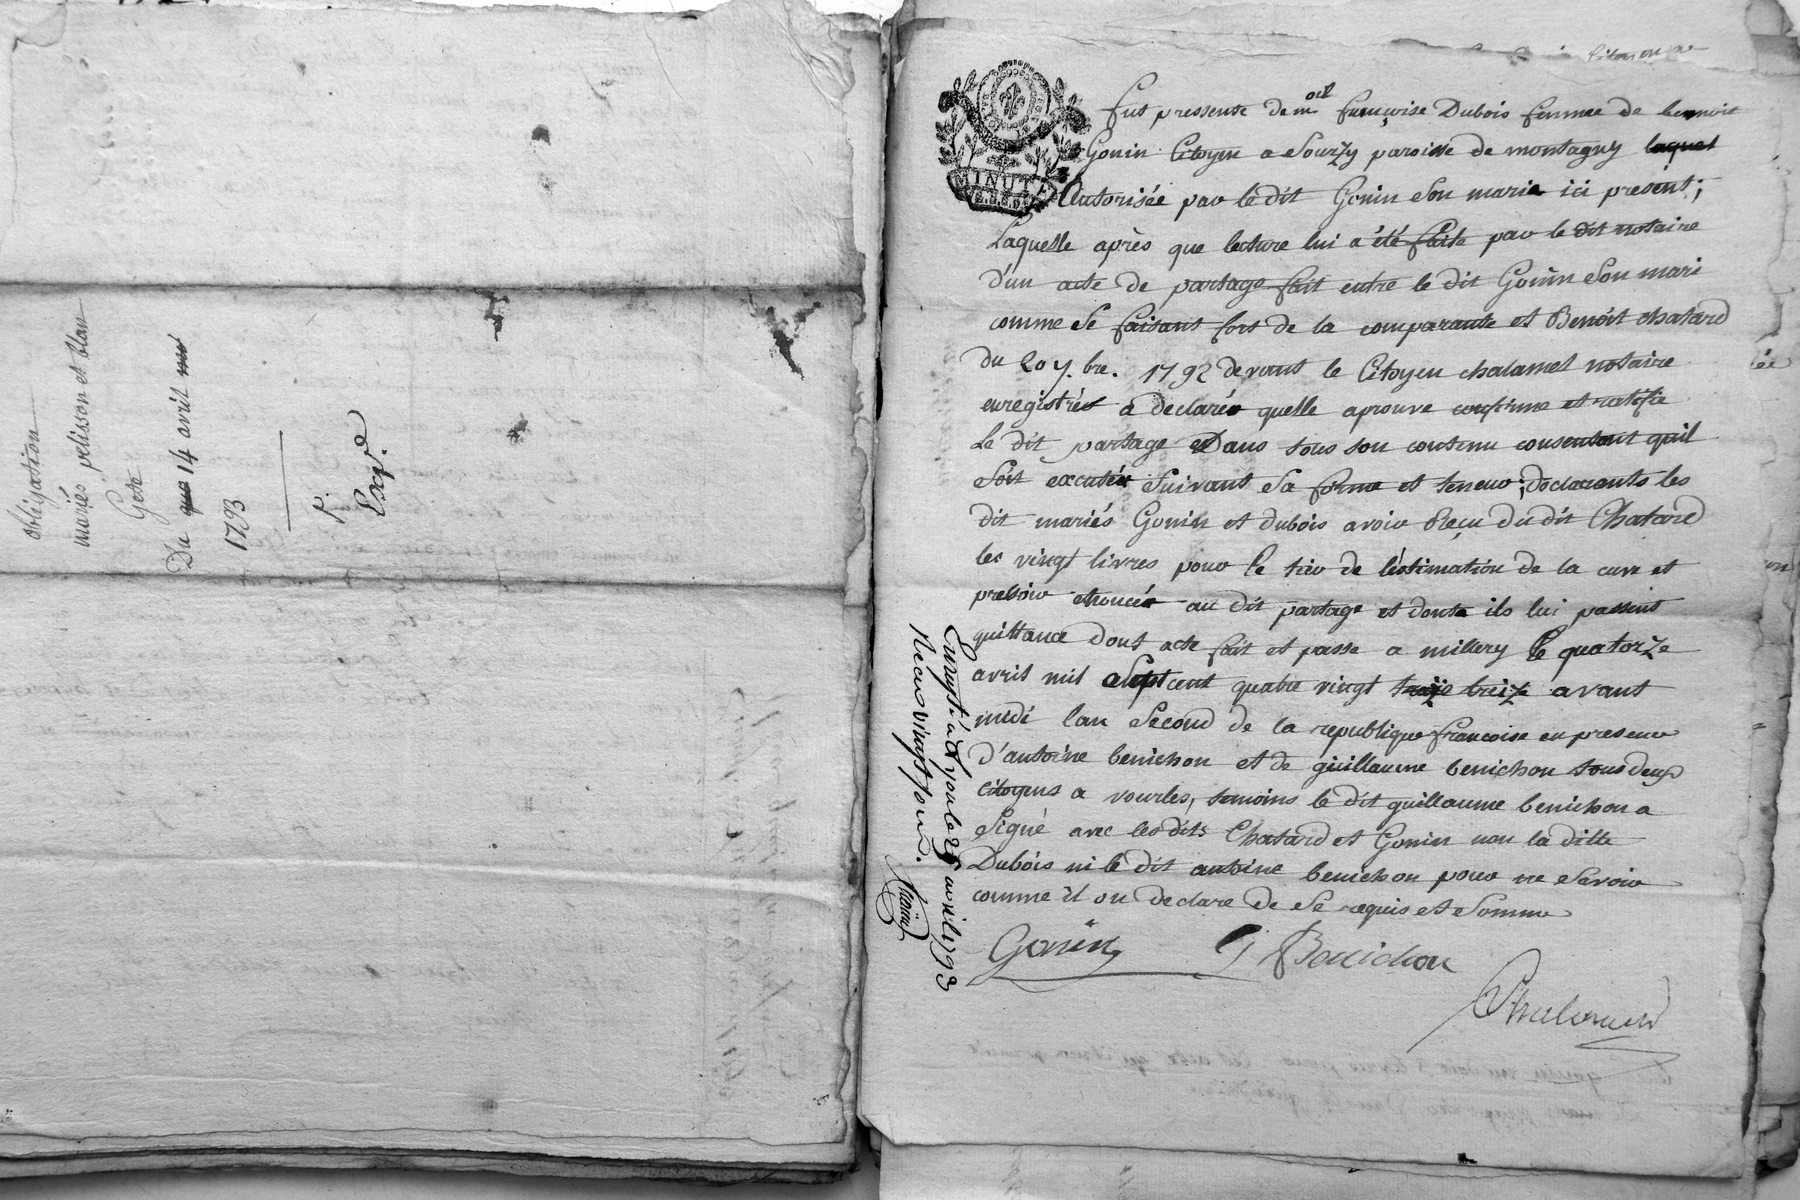 obligation
mariés pelisson et blan
Gete
Du 14 avril
1793
p.
Exp.e
MINUTE
fut pressente dem.oell françoise Dubois femme de bennoit
Gonin Citoyen a Sourzy paroisse de montagny laquel
Autorisée par le dit Gonin Son marie ici présent;
Laquelle après que lecture lui a été faite par le dit notaire
d'un acte de partage fait entre le dit Gonin Son mari
comme Se faisant fort de la comparante et Benoit chatard
du 20 7.bre. 1792 devant le Citoyen chalamel notaire
enregistrés a declarér quelle aprouve confirme et ratifie
Le dit partage Dans tous son contenu consentant quil
Soit excutér Suivant Sa forme et teneur; declarants les
dit mariés Gonin et dubois avoir Reçu du dit Chatard
les vingt livres pour le tier de l'estimation de la cuve et
presoir enoncér au dit partage et donte ils lui passent
quittance dont acte fait et passe a millery le quatorze
avril mil Septcent quatre vingt treize avant
midi lan Second de la republique francoise en presence
d'antoine benichon et de guillaume benichon tous deux
citoyens a vourles, temoins le dit guillaume benichon a
Signé avec les dits Chatard et Gonin non la ditte
Dubois ni le dit antoine benichon pour ne Savoir
comme il on declare de Se requis et Somme
Gonin G Benichon
Chalamel
Enregistré à Lyon le 25 avril 1793
Reçu vingt sous.